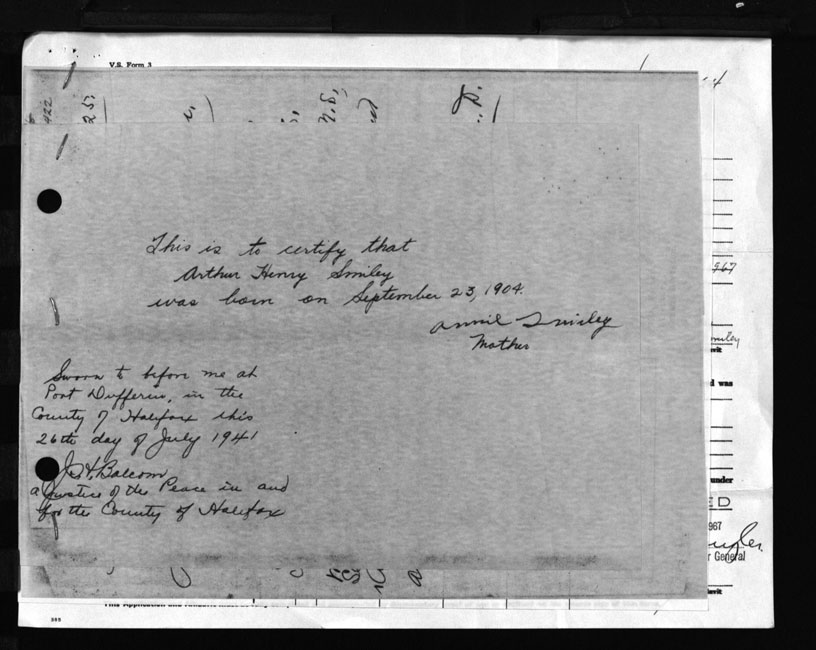 V.S. Form 3
422
25.
N.S.
This is to certify that
Arthur Henry Smiley
was born on September 23, 1904.
Annie Smiley
Mother
Sworn to before me at
Port Dufferin, in the
County of Halifax this
26th day of July 1941
Balcom
a Justice of the Peace in and
for the County of Halifax
967
d was
under
ED
967
r General
This Application and
385